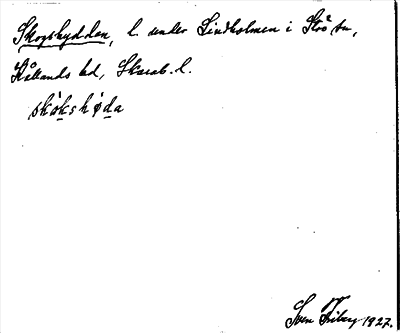 Skogshyddan, l. under Lindholmen i Strö sn,
Kållands hd, Skarab. l.
skókshø̀da
Sven Friberg 1927.